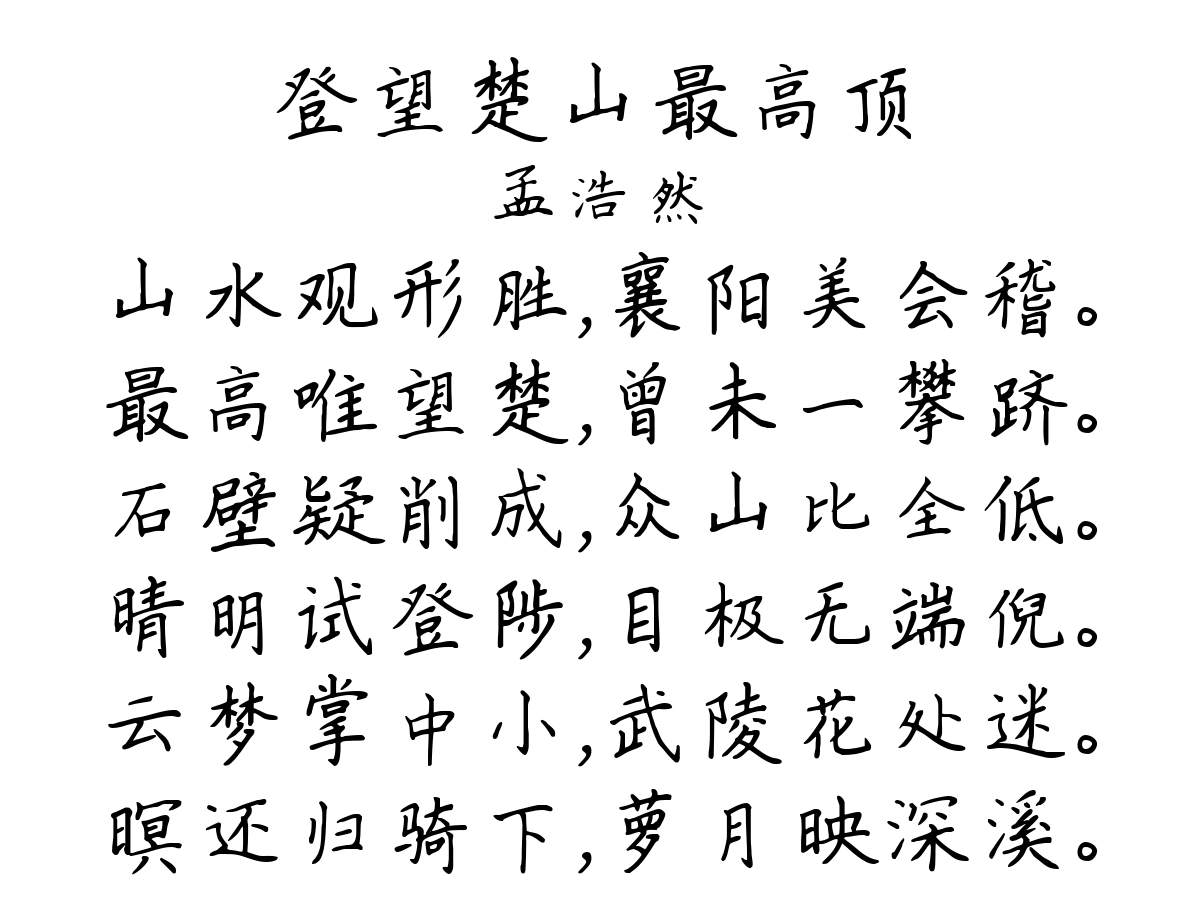 登望楚山最高顶
孟浩然
山水观形胜,襄阳美会稽。
最高唯望楚,曾未一攀跻。
石壁疑削成,众山比全低。
晴明试登陟,目极无端倪。
云梦掌中小,武陵花处迷。
暝还归骑下,萝月映深溪。